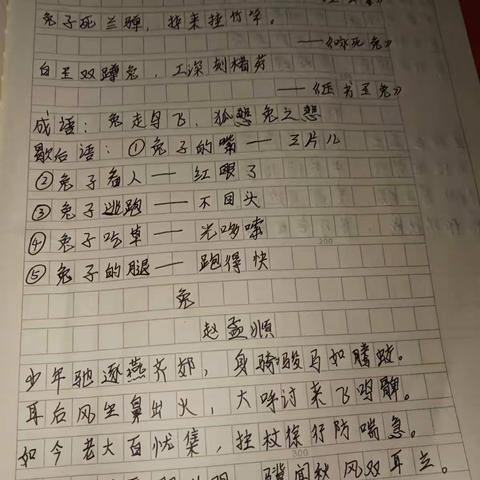 兔子死兰弹，持来挂竹竿。
——《咏死兔》
白玉双蹲兔，工深刻楮芳
——《玉兔》
成语：兔走乌飞、狐悲兔之悲
歇后语：①兔子的嘴——三片儿
②兔子看人——红眼了
③兔子逃跑——不回头
④兔子吃草——光哆嗦
⑤兔子的腿——跑得快
兔
赵孟頫
少年驰逐燕齐郊，身骑骏马如腾蛟。
耳后风生鼻出火，大呼讨来飞鸣髀。
如今老大百忧集，拄杖徐行防喘急。
骥闻秋风双耳立。
300